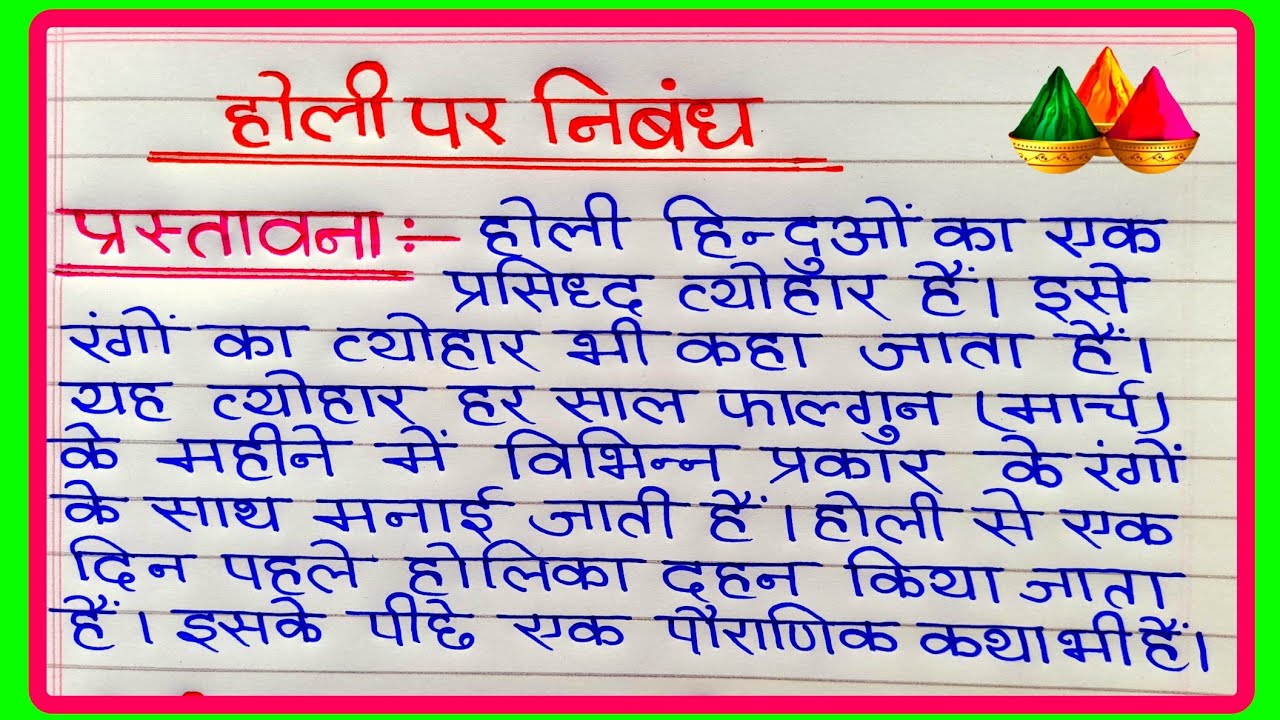 होली पर निबंध
प्रस्तावना :– होली हिन्दुओं का एक
प्रसिध्द त्योहार हैं। इसे
रंगों का त्योहार भी कहा जाता हैं।
यह त्योहार हर साल फाल्गुन (मार्च)
के महीने में विभिन्न प्रकार के रंगों
के साथ मनाई जाती हैं। होली से एक
दिन पहले होलिका दहन किया जाता
हैं। इसके पीछे एक पौराणिक कथा भी हैं।